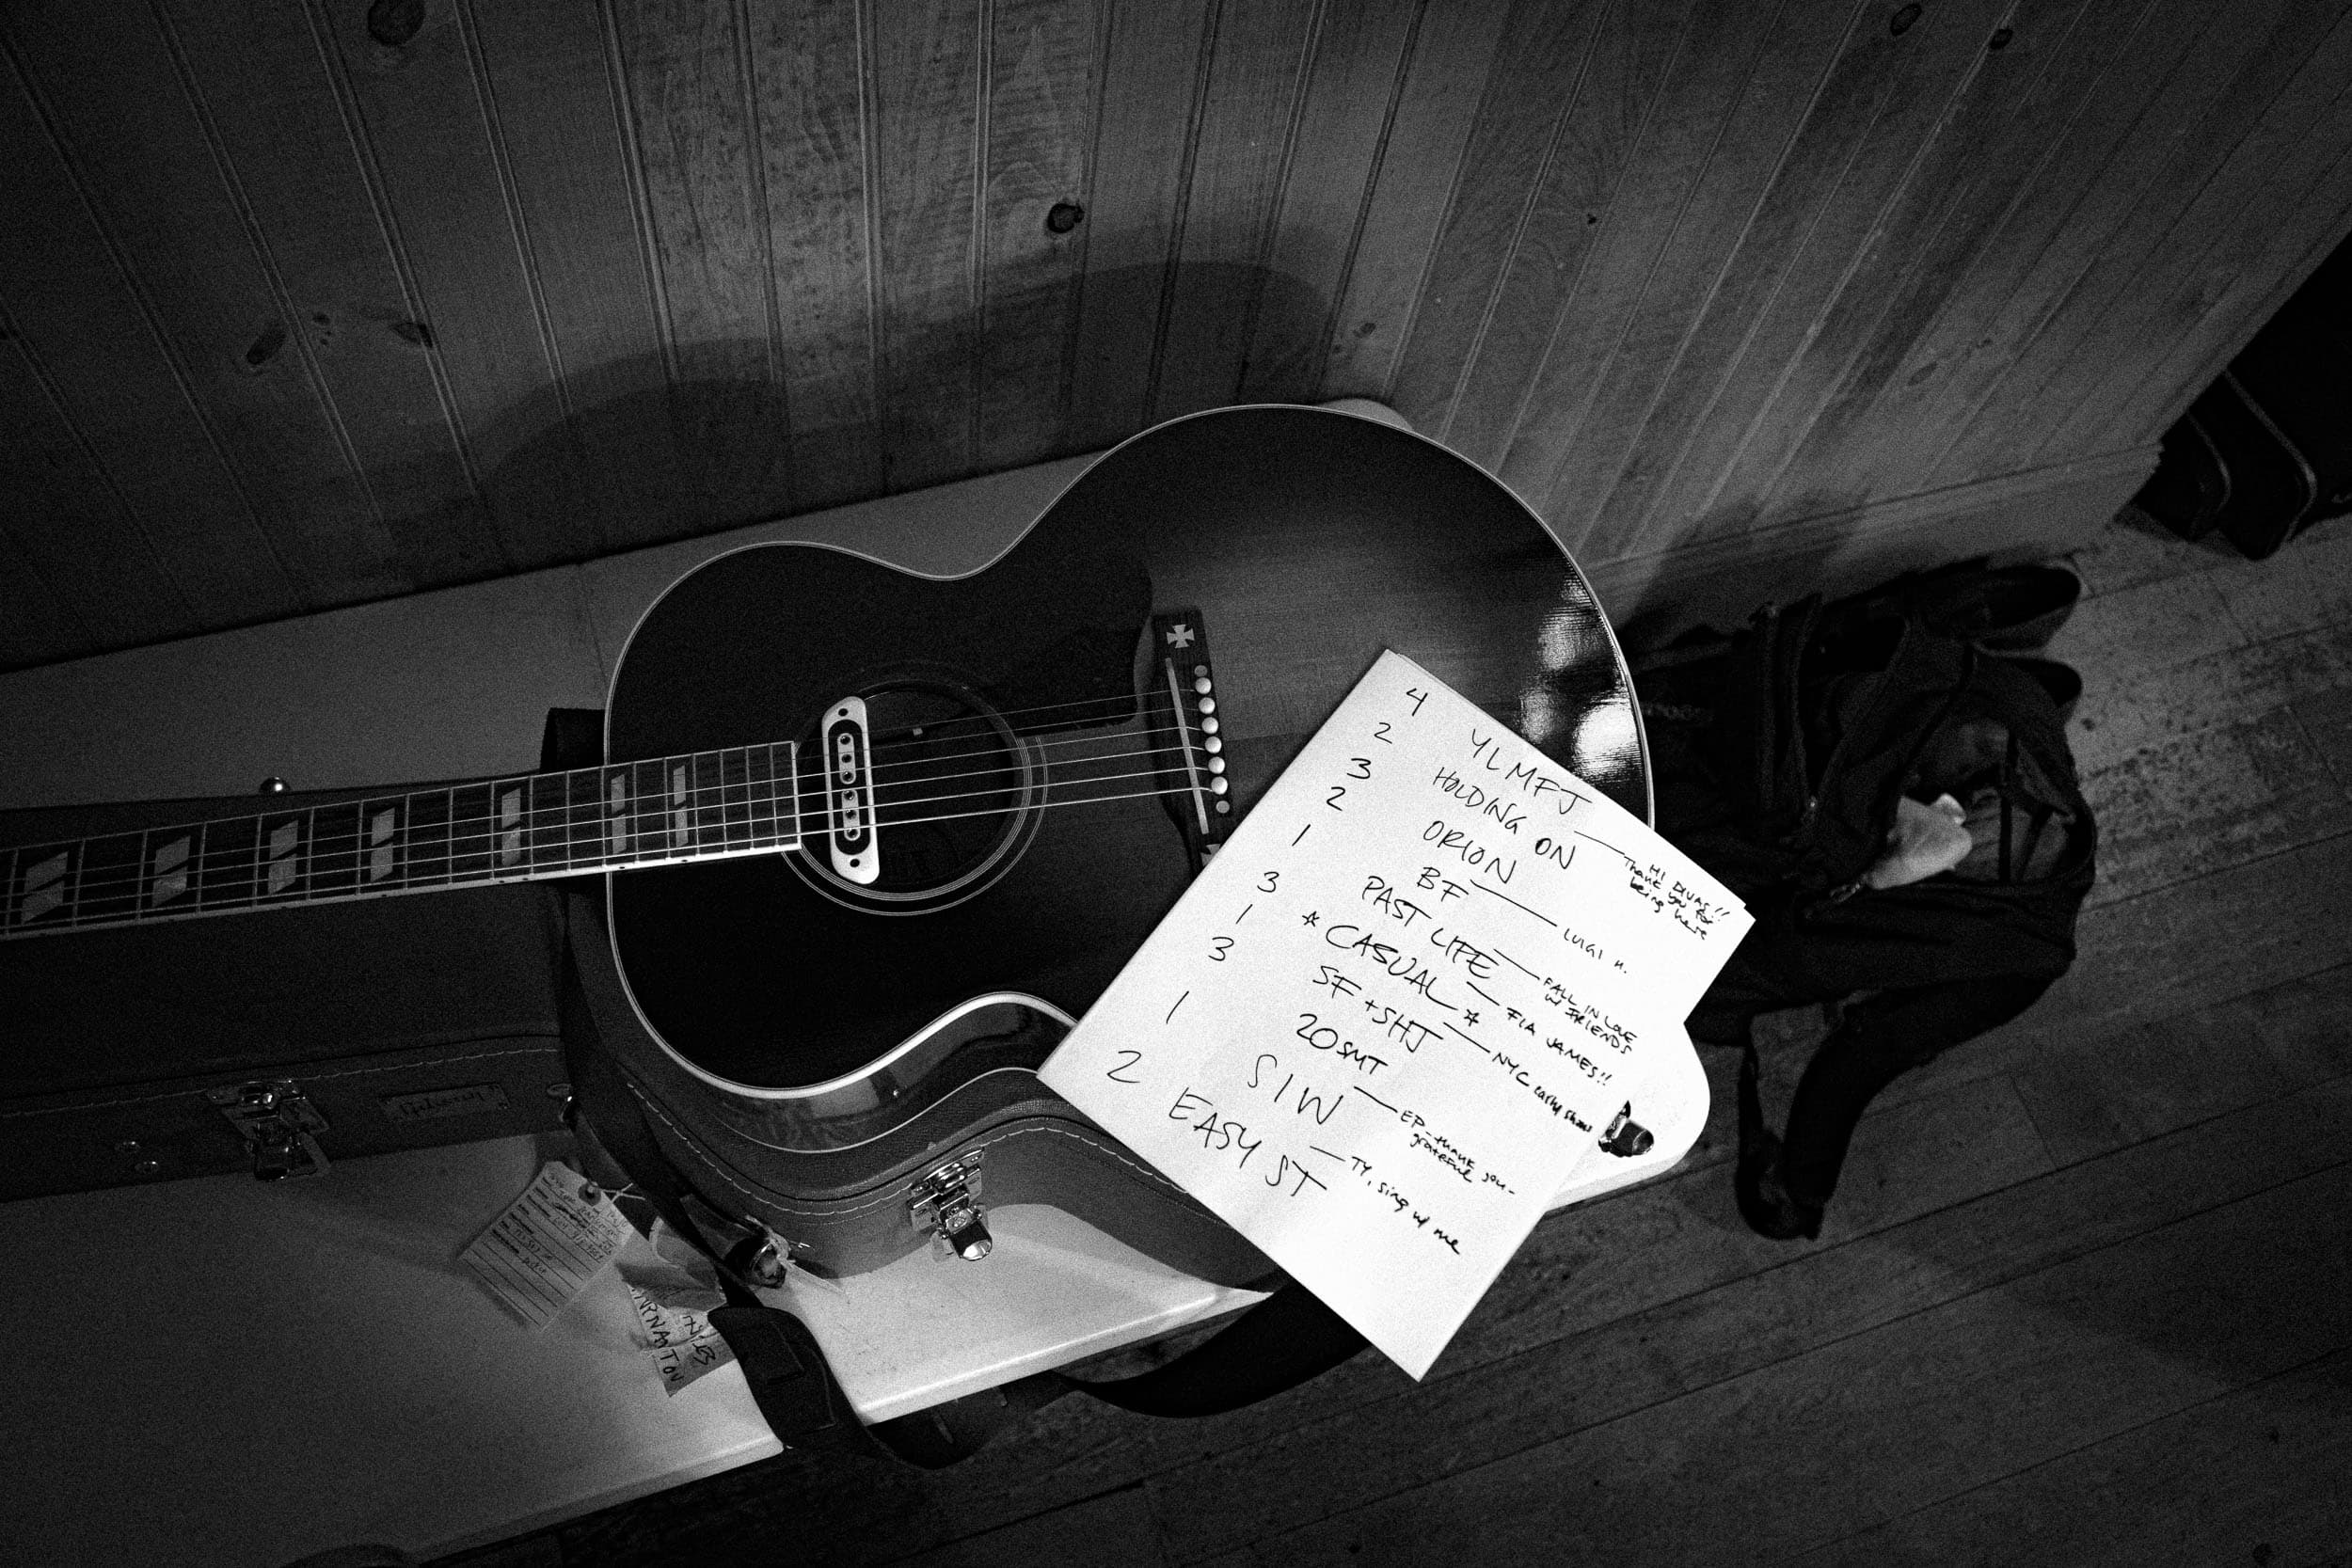 4 YLMFJ
2 HOLDING ON — HI DIVAS!!
Thank you for
being here
3 ORION
2 BF — LUIGI n.
1 PAST LIFE — FALL IN LOVE
w/ FRIENDS
3 *CASUAL* — FIA JAMES!!
1 SF + SHJ — NYC early show
3 20SMT
1 SIW — EP - thank you -
grateful
2 EASY ST — TY, sing w/ me